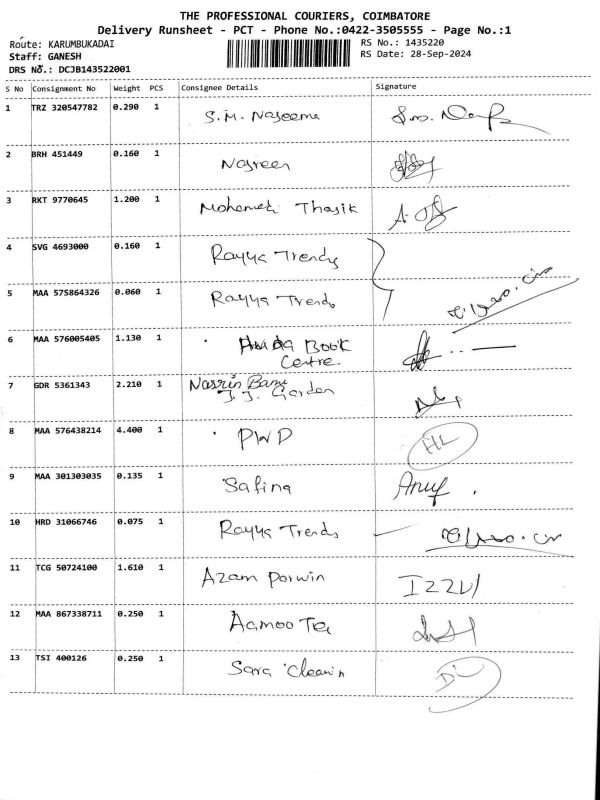 THE PROFESSIONAL COURIERS, COIMBATORE
Delivery Runsheet - PCT - Phone No.:0422-3505555 - Page No.:1
Route: KARUMBUKADAI RS No.: 1435220
Staff: GANESH RS Date: 28-Sep-2024
DRS No.: DCJB143522001
S No Consignment No Weight PCS Consignee Details Signature
1 TRZ 320547782 0.290 1 S.M. Naseema
2 BRH 451449 0.160 1 Nasreen
3 RKT 9770645 1.200 1 Mohamed Thasik
4 SVG 4693000 0.160 1 Rayya Trends
5 MAA 575864326 0.060 1 Rayya Trends
6 MAA 576005405 1.130 1 Book
Centre
7 GDR 5361343 2.210 1 Nasrin Banu
J.J. Garden
8 MAA 576438214 4.400 1 PWD
9 MAA 301303035 0.135 1 Safina
10 HRD 31066746 0.075 1 Rayya Trends
11 TCG 50724100 1.610 1 Azam Parwin
12 MAA 867338711 0.250 1 Aamoo Tex
13 TSI 400126 0.250 1 Sara Cleanin